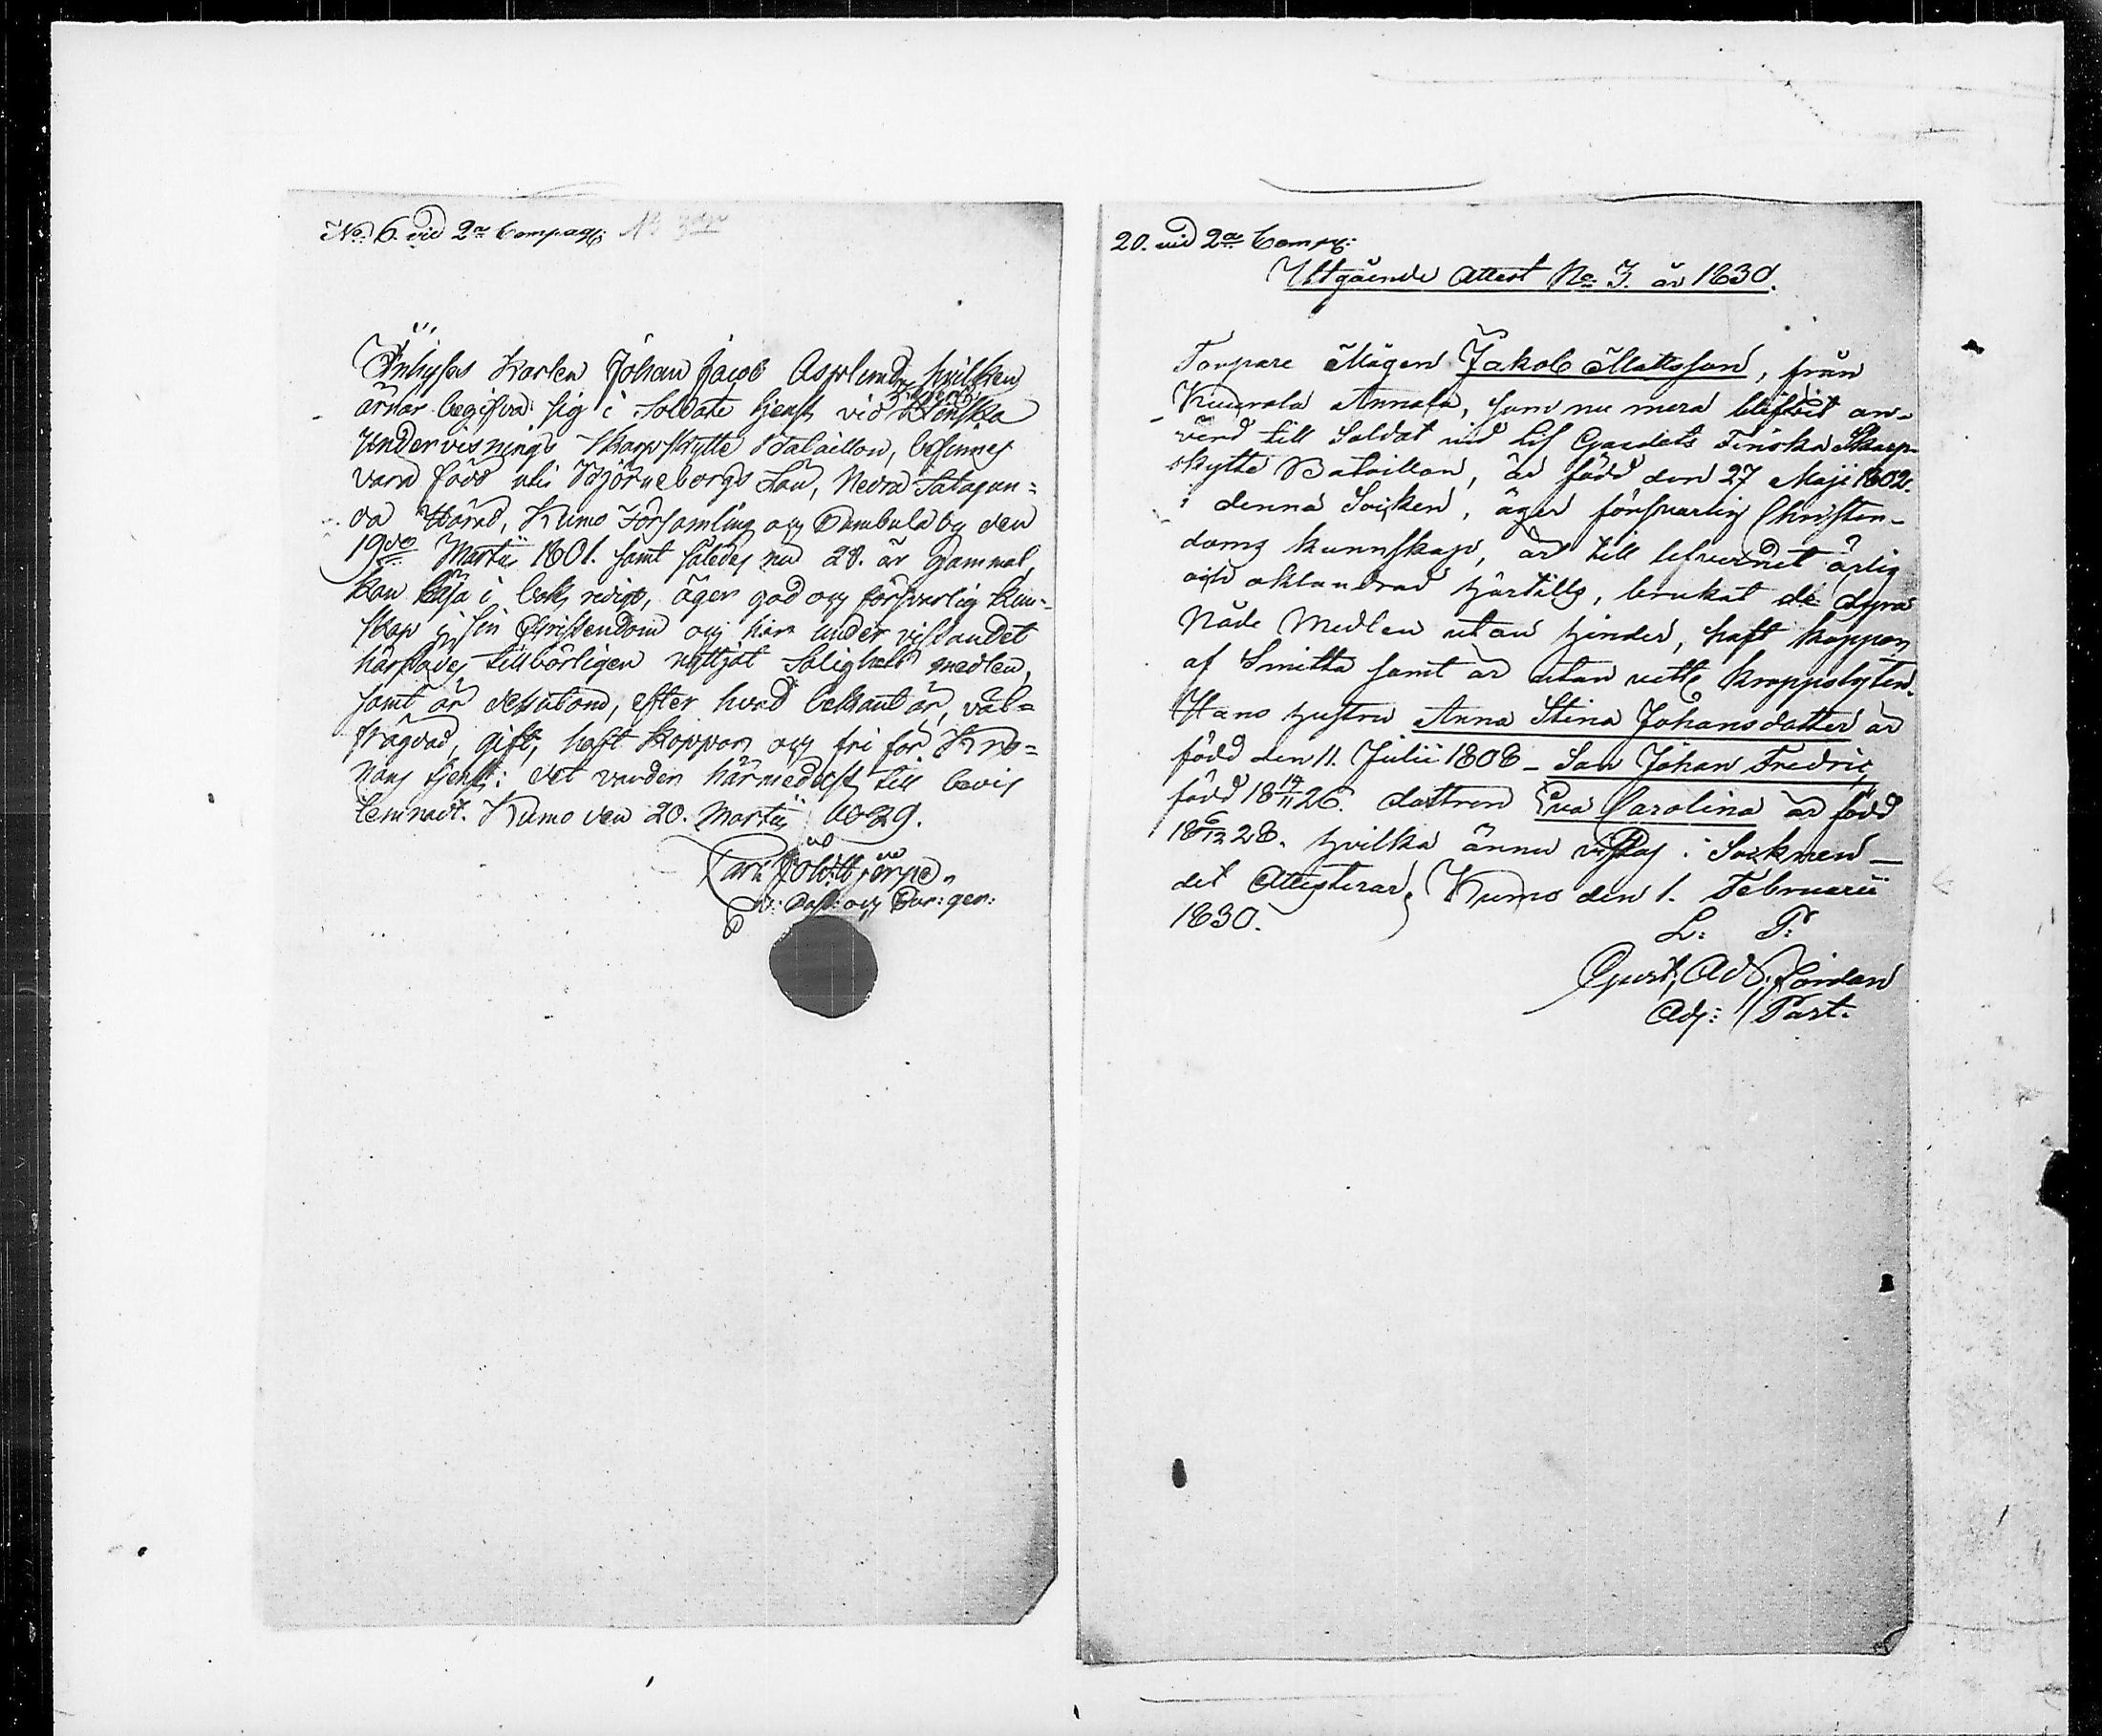 No: 6. vid 2a Compag:
Inhyses Karlen Johan Jacob Asplund, hvilken
ärnar begifva sig i Soldate tjenst vid Finska
Undervisnings Skarpskytte Bataillon, befinnes
vara född uti Björneborgs Län, Nedra Satagun=
da Härad, Kumo Församling och Pambula by den
19de Martii 1801. samt således nu 28. år gammal,
kan läsa i bok redigt, äger god och försvarlig kun=
skap i sin Christendom och har under vistandet
härstädes tillbörligen nyttjat Salighets medlen,
samt är dessutom, efter hvad bekant är, väl=
frägdad, gift, haft koppor och fri för Kro=
nans tjenst: det varder härmedelst till bevis
lemnadt. Kumo den 20. Martii 1829.
Carl
v: Past: och Par: gen:
20. vid 2a Comp:
Utgående Attest No: 3. år 1830.
Torpare Mågen Jakob Mattsson, från
Kuurola Annala, som nu mera blifvit an=
vänd till Soldat vid Lif Gardets Finska Skarp-
skytte Bataillon, är född den 27 Maji 1802.
i denna Socken, äger försvarlig Christen-
doms kunnskap, är till lefvernet ärlig
och oklandrad härtills, brukat de dyra
Nåde Medlen utan hinder, haft koppor
af Smitta samt är utan vett kroppslyten.
Hans hustru Anna Stina Johansdotter är
född den 11. Julii 1808 - Son Johan Fredric
född 18 14/11 26. dottren Eva Carolina är född
18 6/12 28. hvilka ännu vistas i Socknen —
det Attesterar, Kumo den 1. Februarii
1830.
L: P:
Gust: Ad:
Adj: Past.